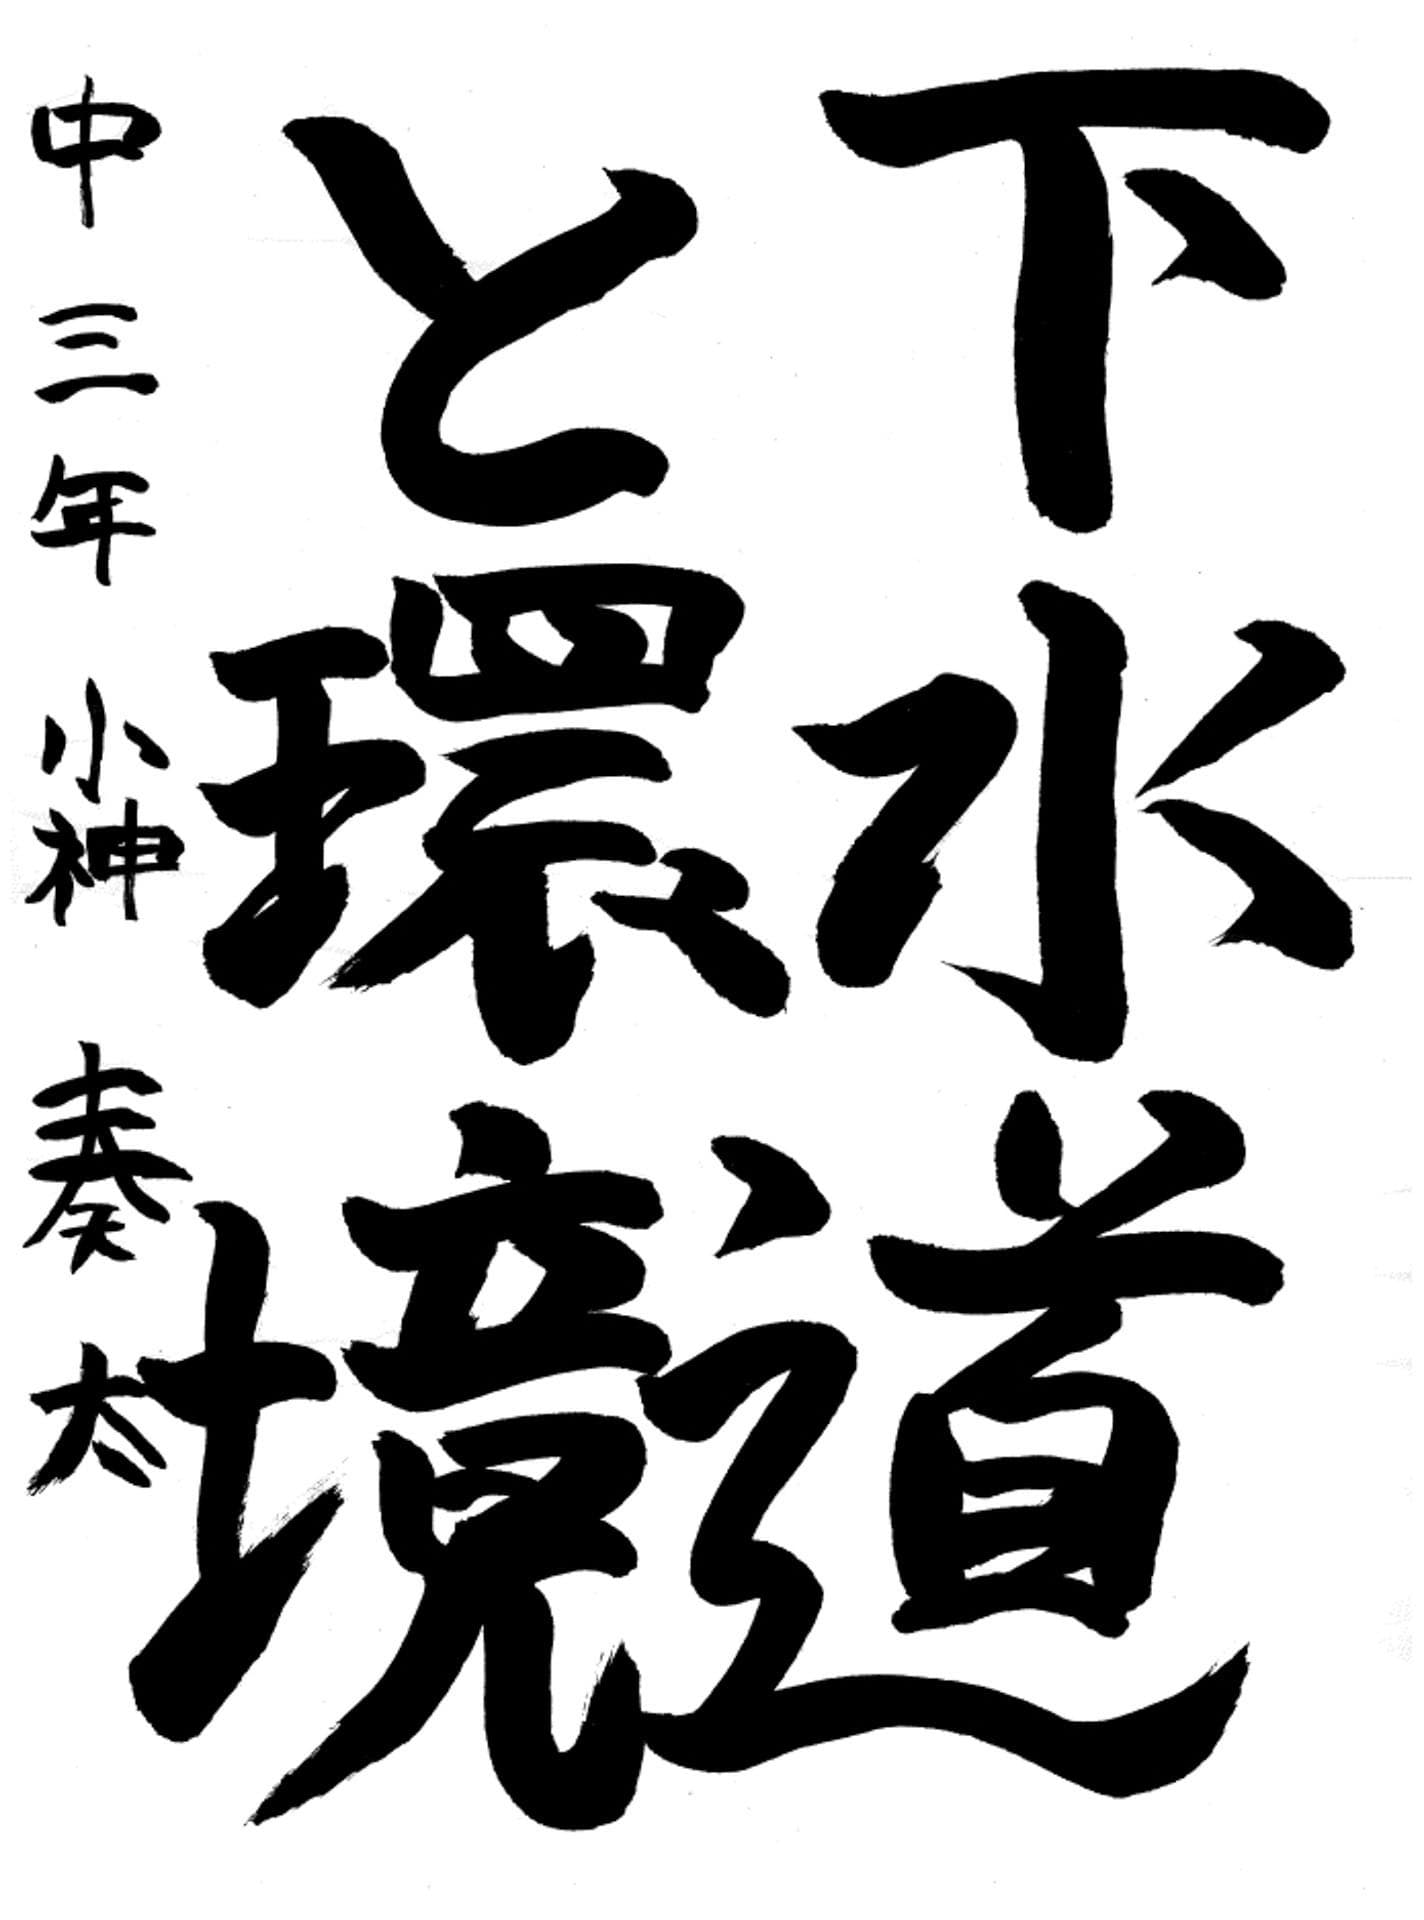 下水道
と環境
中三年 小神 奏太